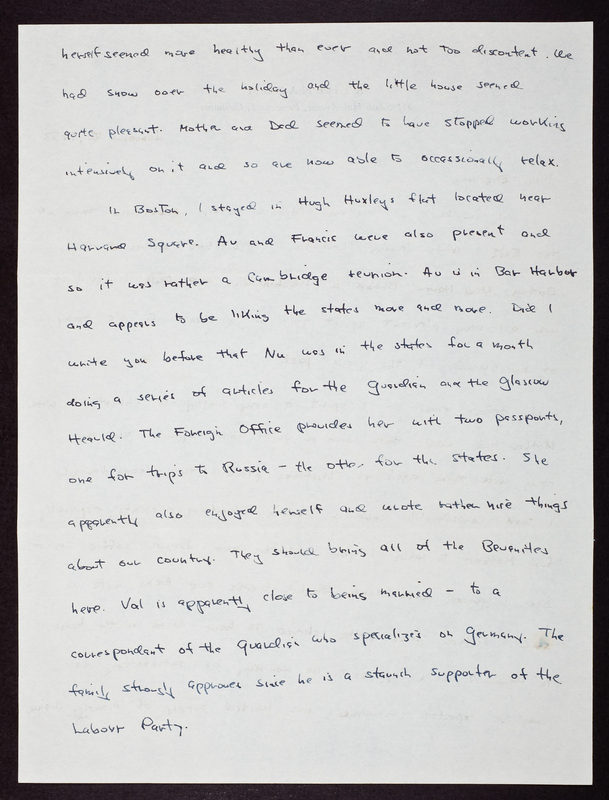 herself seemed more healthy than ever and not too discontent. We
had snow over the holiday and the little house seemed
quite pleasant. Mother and Dad seemed to have stopped working
intensively on it and so are now able to occassionally relax.
In Boston, I stayed in Hugh Huxleys flat located near
Harvard Square. Av and Francis were also present and
so it was rather a Cambridge reunion. Av is in Bar Harbor
and appears to be liking the states more and more. Did I
write you before that Nu was in the states for a month
doing a series of articles for the Guardian and the Glascow
Herald. The Foreign Office provides her with two passports,
one for trips to Russia – the other for the States. She
apparently also enjoyed herself and wrote rather nice things
about our country. They should bring all of the Bevanites
here. Val is apparently close to being married – to a
correspondant of the Guardian who specializes on Germany. The
family strongly approves since he is a staunch supporter of the
Labour Party.